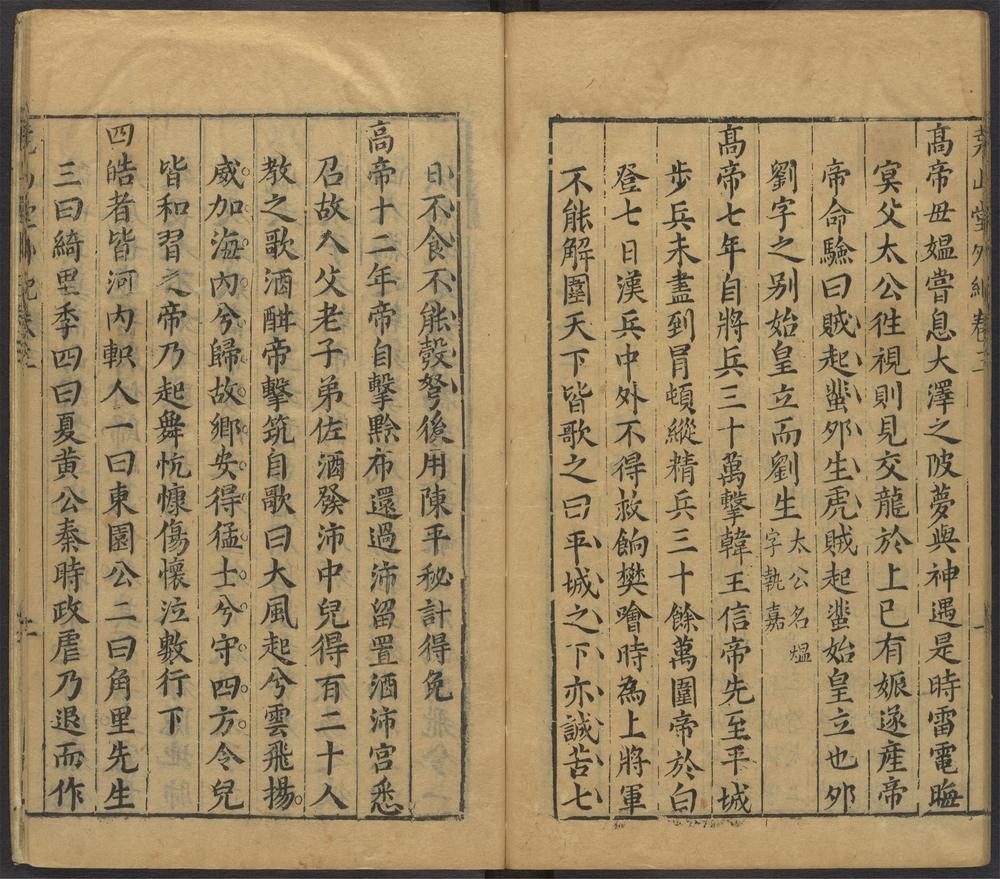 堯山堂外紀卷三
高帝毋媼嘗息大澤之陂夢與神遇是時雷電晦
冥父太公徃視則見交龍於上已有娠遂產帝
帝命驗曰賊起蜚夘生虎賊起蜚始皇立也夘
劉字之別始皇立而劉生
太公名煴
字執嘉
髙帝七年自將兵三十萬擊韓王信帝先至平城
步兵未盡到冒頓縱精兵三十餘萬圍帝於白
登七日漢兵中外不得救餉樊噲時為上將軍
不能解圍天下皆歌之曰平城之下亦誠苦七
日不食不能彀弩後用陳平秘計得免
高帝十二年帝自擊黥布還過沛留置酒沛宮悉
召故人父老子弟佐酒發沛中兒得百二十人
教之歌酒酣帝擊筑自歌曰大風起兮雲飛揚
威加海內兮歸故鄉安得猛士兮守四方令兒
皆和習之帝乃起舞忼慷傷懷泣數行下
四皓者皆河內軹人一曰東園公二曰角里先生
三曰綺里季四曰夏黃公秦時政虐乃退而作